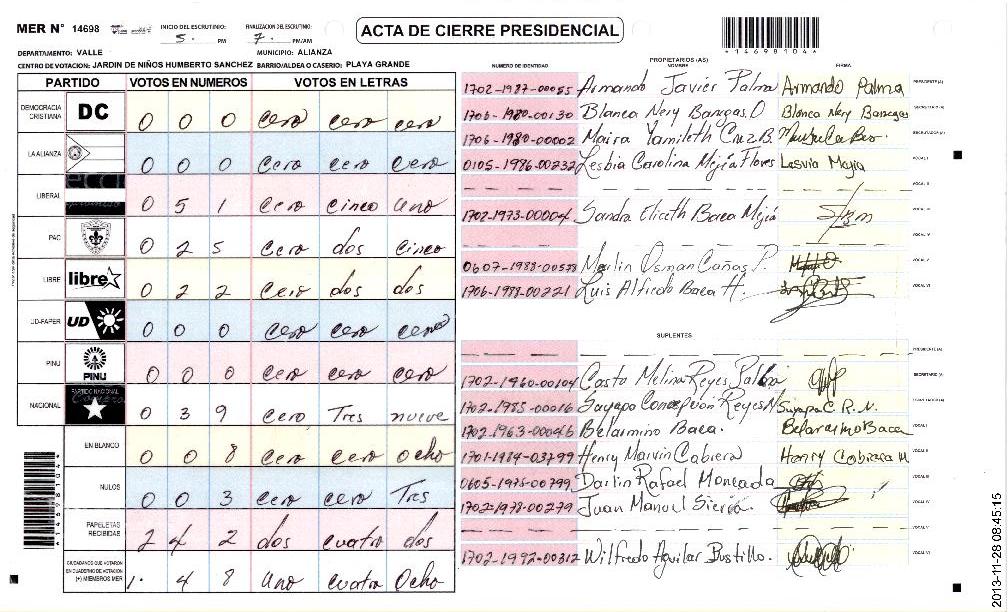 MER N° 14698 INICIO DEL ESCRUTINIO: 5. PM FINALIZACION DEL ESCRUTINIO: 7. PM/AM
ACTA DE CIERRE PRESIDENCIAL
*14698104*
DEPARTAMENTO: VALLE MUNICIPIO: ALIANZA
CENTRO DE VOTACION: JARDIN DE NIÑOS HUMBERTO SANCHEZ BARRIO/ALDEA O CASERIO: PLAYA GRANDE
PARTIDO VOTOS EN NUMEROS VOTOS EN LETRAS
DEMOCRACIA CRISTIANA DC 0 0 0 cero cero cero
LA ALIANZA 0 0 0 cero cero cero
LIBERAL 0 5 1 cero cinco uno
PAC 0 2 5 cero dos cinco
LIBRE libre 0 2 2 cero dos dos
UD-FAPER UD 0 0 0 cero cero cero
PINU PINU 0 0 0 cero cero cero
NACIONAL PARTIDO NACIONAL 0 3 9 cero Tres nueve
EN BLANCO 0 0 8 cero cero ocho
NULOS 0 0 3 cero cero Tres
PAPELETAS RECIBIDAS 2 4 2 dos cuatro dos
CIUDADANOS QUE VOTARON EN CUADERNO DE VOTACION (+) MIEMBROS MER 1. 4 8 uno cuatro Ocho
*14698104*
PROPIETARIOS (AS)
NUMERO DE IDENTIDAD NOMBRE FIRMA
1702-1987-00055 Armando Javier Palma Armando Palma PRESIDENTE (A)
1706-1980-00130 Blanca Nery Banegas O Blanca Nery Banegas SECRETARIO (A)
1706-1980-00002 Maira Yamileth Cruz B. ESCRUTADOR (A)
0105-1986-00232 Lesbia Carolina Mejía Flores Lesvia Mejia VOCAL I
VOCAL II
1702-1973-00004 Sandra Elizeth Baca Mejía VOCAL III
VOCAL IV
0607-1988-00538 Marlin Osman Cañas P. VOCAL V
1706-1988-00221 Luis Alfredo Baca H. VOCAL VI
SUPLENTES
PRESIDENTE (A)
1702-1960-00104 Casto Melina Reyes SECRETARIO (A)
1702-1985-00016 Suyapa Concepción Reyes N Suyapa C. R. N. ESCRUTADOR (A)
1702-1963-00046 Belarmino Baca. Belarmino Baca VOCAL I
1701-1984-03799 Henry Marvin Cabrera Henry Cabrera M VOCAL II
0605-1975-00799 Darlin Rafael Moncada VOCAL III
1702-1978-00279 Juan Manuel Sierra. VOCAL IV
VOCAL V
1702-1992-00312 Wilfredo Aguilar Bustillo. VOCAL VI
2013-11-28 08:45:15